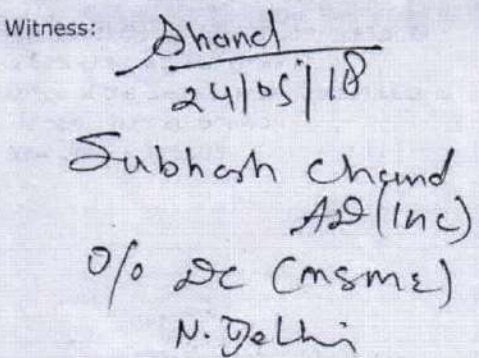 Witness: Shand
24/05/18
Subhash Chand
AD (Inc)
O/o DC (MSME)
N. Delhi